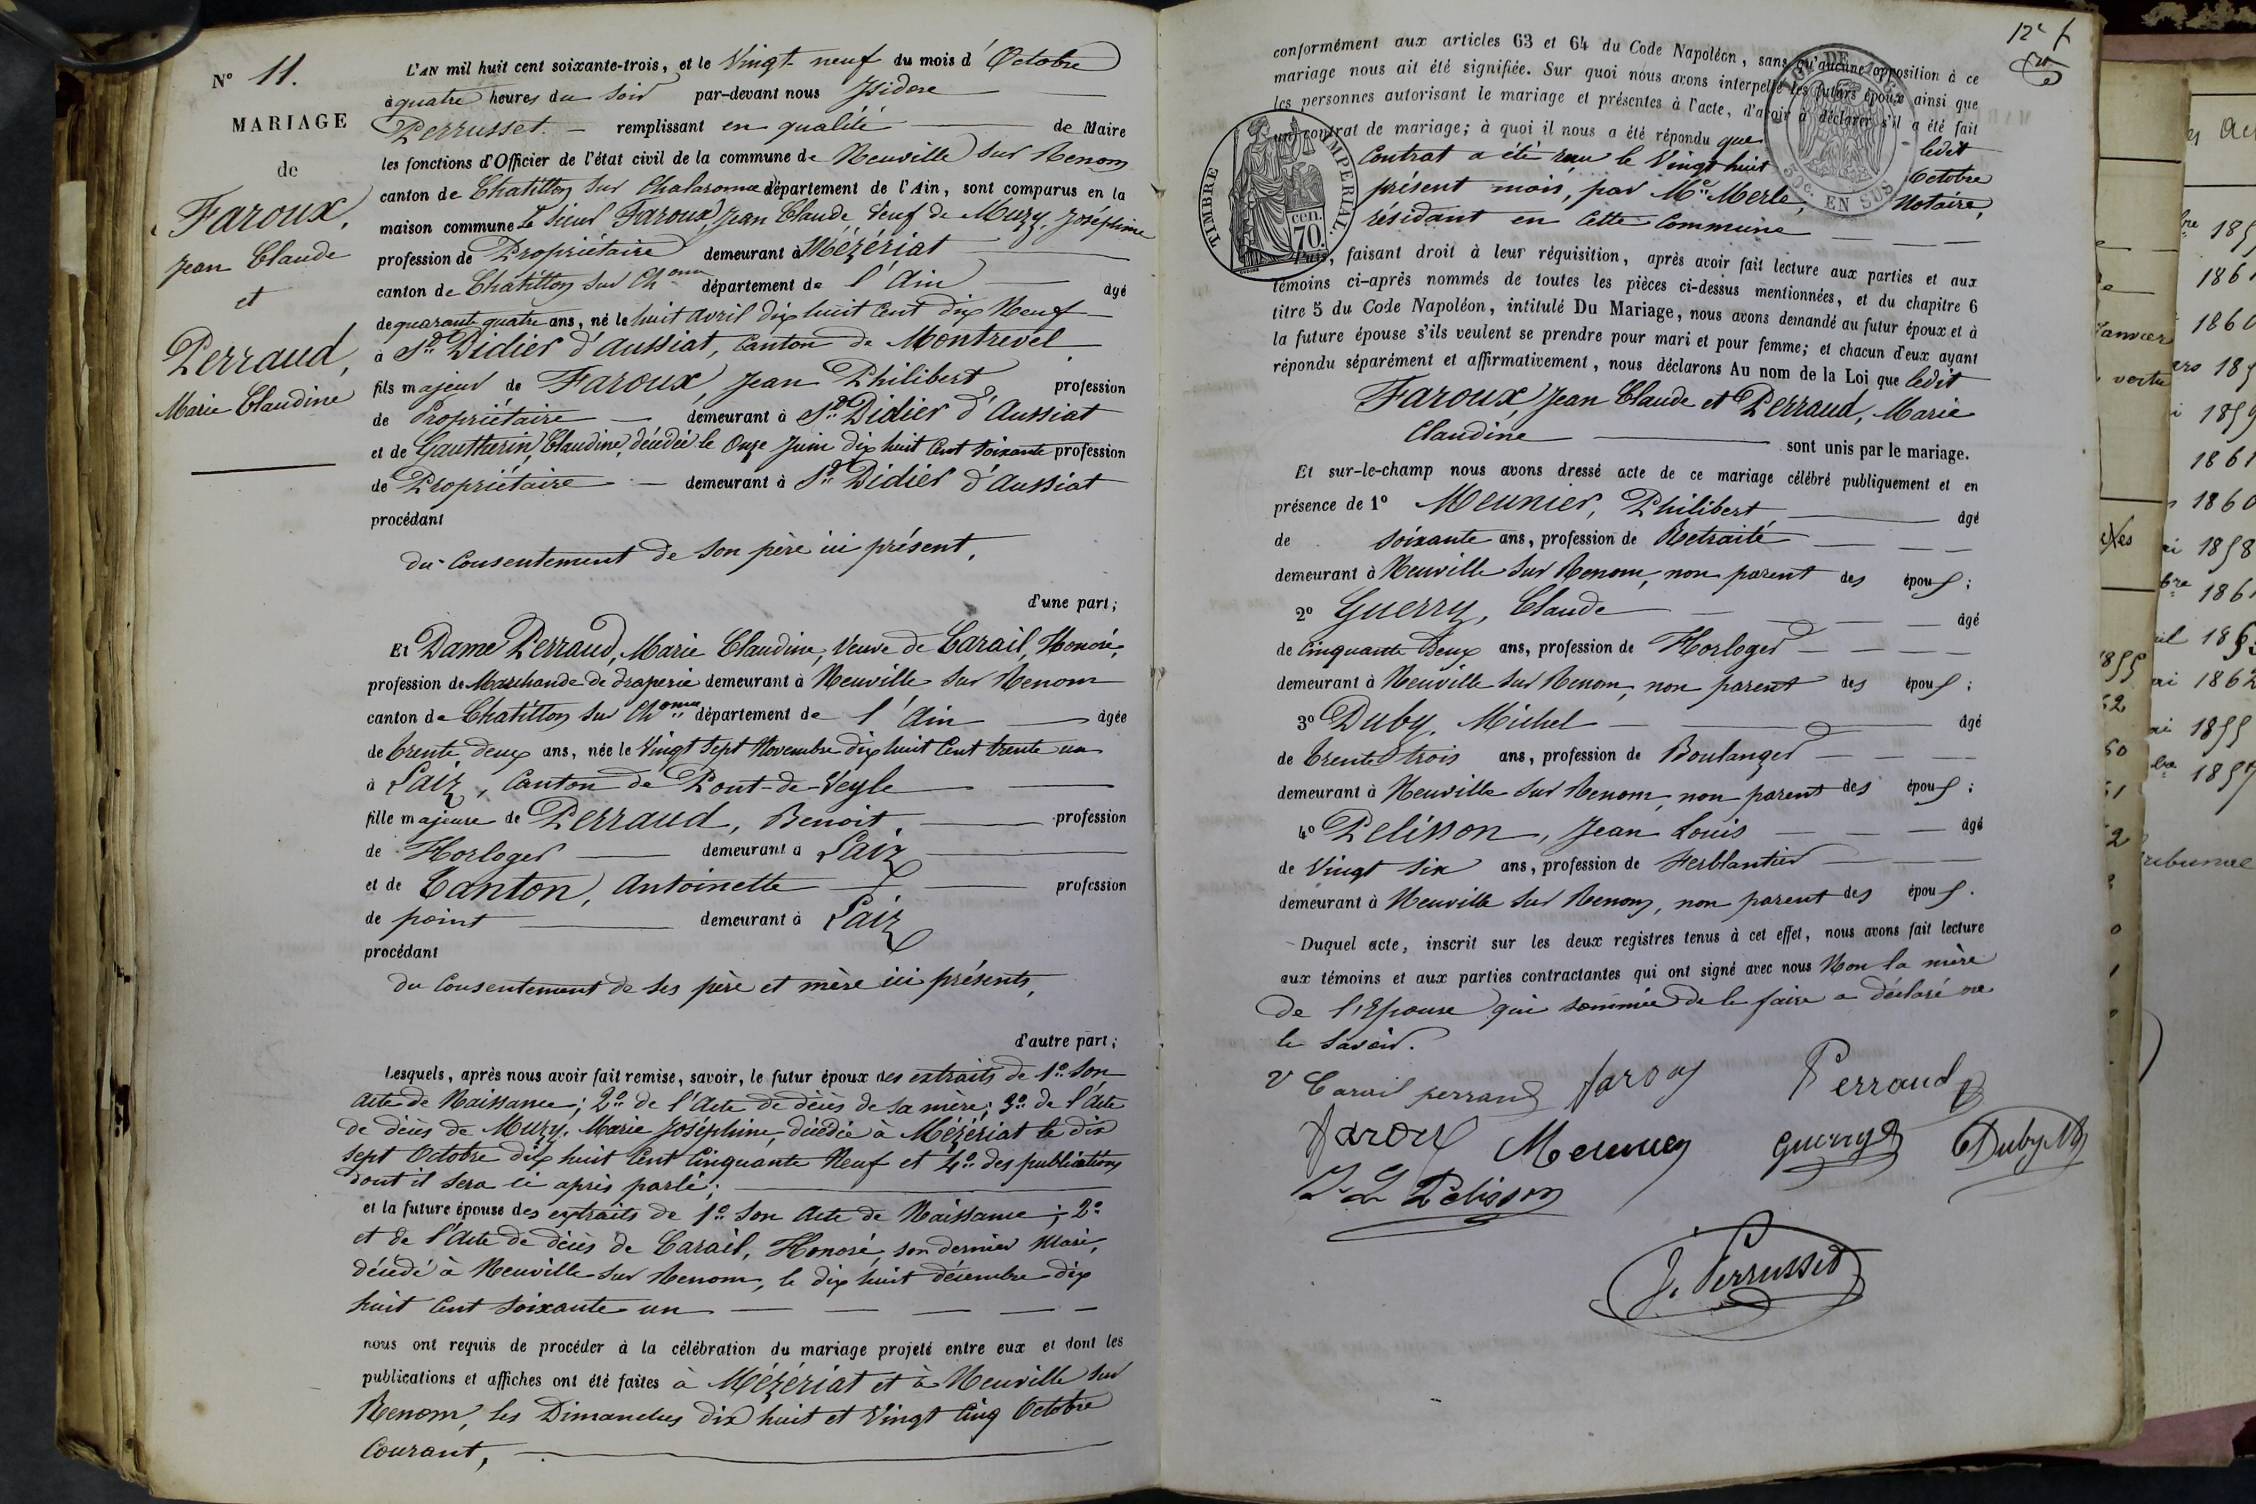 N° 11.
MARIAGE
de
Faroux,
Jean Claude
et
Perraud,
Marie Claudine
L'AN mil huit cent soixante-trois, et le Vingt-neuf du mois d'Octobre
à quatre heures du soir par-devant nous Isidore
Perrusset — remplissant en qualité — de Maire
les fonctions d'Officier de l'état civil de la commune de Neuville sur Renom
canton de Chatillon sur Chalaronne département de l'Ain, sont comparus en la
maison commune Le sieur Faroux, Jean Claude, Veuf de Muzy, Joséphine
profession de Propriétaire demeurant à Mézériat
canton de Chatillon sur Ch.onne département de l'Ain — âgé
de quarante quatre ans, né le huit avril dix huit cent dix Neuf
à St Didier d'Aussiat, Canton de Montrevel
fils majeur de Faroux, Jean Philibert profession
de Propriétaire — demeurant à St Didier d'Aussiat
et de Gautherin, Claudine, décédée le Onze Juin dix huit Cent soixante profession
de Propriétaire — demeurant à St Didier d'Aussiat
procédant
du Consentement de son père ici présent,
d'une part;
Et Dame Perraud, Marie Claudine, Veuve de Carail, Honoré,
profession de Marchande de draperie demeurant à Neuville sur Renom
canton de Chatillon sur Ch.onne département de l'Ain — âgée
de trente deux ans, née le Vingt sept Novembre dix huit Cent trente un
à Laiz, Canton de Pont-de-Veyle
fille majeure de Perraud, Benoit, — profession
de Horloger — demeurant à Laiz
et de Canton, Antoinette — profession
de point — demeurant à Laiz
procédant
du Consentement de ses père et mère ici présents,
d'autre part;
Lesquels, après nous avoir fait remise, savoir, le futur époux des extraits de 1° son
Acte de Naissance; 2° de l'Acte de décès de sa mère; 3° de l'Acte
de décès de Muzy, Marie Joséphine, décédée à Mézériat le dix
sept Octobre dix huit Cent Cinquante Neuf et 4° des publications
dont il sera ci après parlé;
et la future épouse des extraits de 1° son Acte de Naissance; 2°
et de l'Acte de décès de Carail, Honoré, son dernier Mari,
décédé à Neuville sur Renom, le dix huit décembre dix
huit Cent soixante un — — — — —
nous ont requis de procéder à la célébration du mariage projeté entre eux et dont les
publications et affiches ont été faites à Mézériat et à Neuville sur
Renom, les Dimanches dix huit et Vingt Cinq Octobre
Courant,
conformément aux articles 63 et 64 du Code Napoléon, sans qu'aucune opposition à ce
mariage nous ait été signifiée. Sur quoi nous avons interpellé les futurs époux ainsi que
les personnes autorisant le mariage et présentes à l'acte, d'avoir à déclarer s'il a été fait
un contrat de mariage; à quoi il nous a été répondu que ledit
Contrat a été reçu le Vingt huit Octobre
présent mois, par Me Merle, Notaire,
résidant en cette Commune — — —
TIMBRE IMPÉRIAL.
cen.
70.
50 c. EN SUS
Puis, faisant droit à leur réquisition, après avoir fait lecture aux parties et aux
témoins ci-après nommés de toutes les pièces ci-dessus mentionnées, et du chapitre 6
titre 5 du Code Napoléon, intitulé Du Mariage, nous avons demandé au futur époux et à
la future épouse s'ils veulent se prendre pour mari et pour femme; et chacun d'eux ayant
répondu séparément et affirmativement, nous déclarons Au nom de la Loi que ledit
Faroux, Jean Claude et Perraud, Marie
Claudine — sont unis par le mariage.
Et sur-le-champ nous avons dressé acte de ce mariage célébré publiquement et en
présence de 1° Meunier, Philibert — âgé
de soixante ans, profession de Retraité — — —
demeurant à Neuville sur Renom, non parent des époux;
2° Guerry, Claude — — — — âgé
de Cinquante Deux ans, profession de Horloger — — — —
demeurant à Neuville sur Renom, non parent des époux;
3° Duby, Michel — — âgé
de trente trois ans, profession de Boulanger — — —
demeurant à Neuville sur Renom, non parent des époux;
4° Pelisson, Jean Louis — — — âgé
de Vingt six ans, profession de Ferblantier — — —
demeurant à Neuville sur Renom, non parent des époux.
Duquel acte, inscrit sur les deux registres tenus à cet effet, nous avons fait lecture
aux témoins et aux parties contractantes qui ont signé avec nous Non la mère
de l'Epouse qui sommée de le faire a déclaré ne
le savoir.
Ve Carail perraud Faroux Perraud
Faroux Meunier Guerry Duby M
J L Pelisson
J. Perrusset